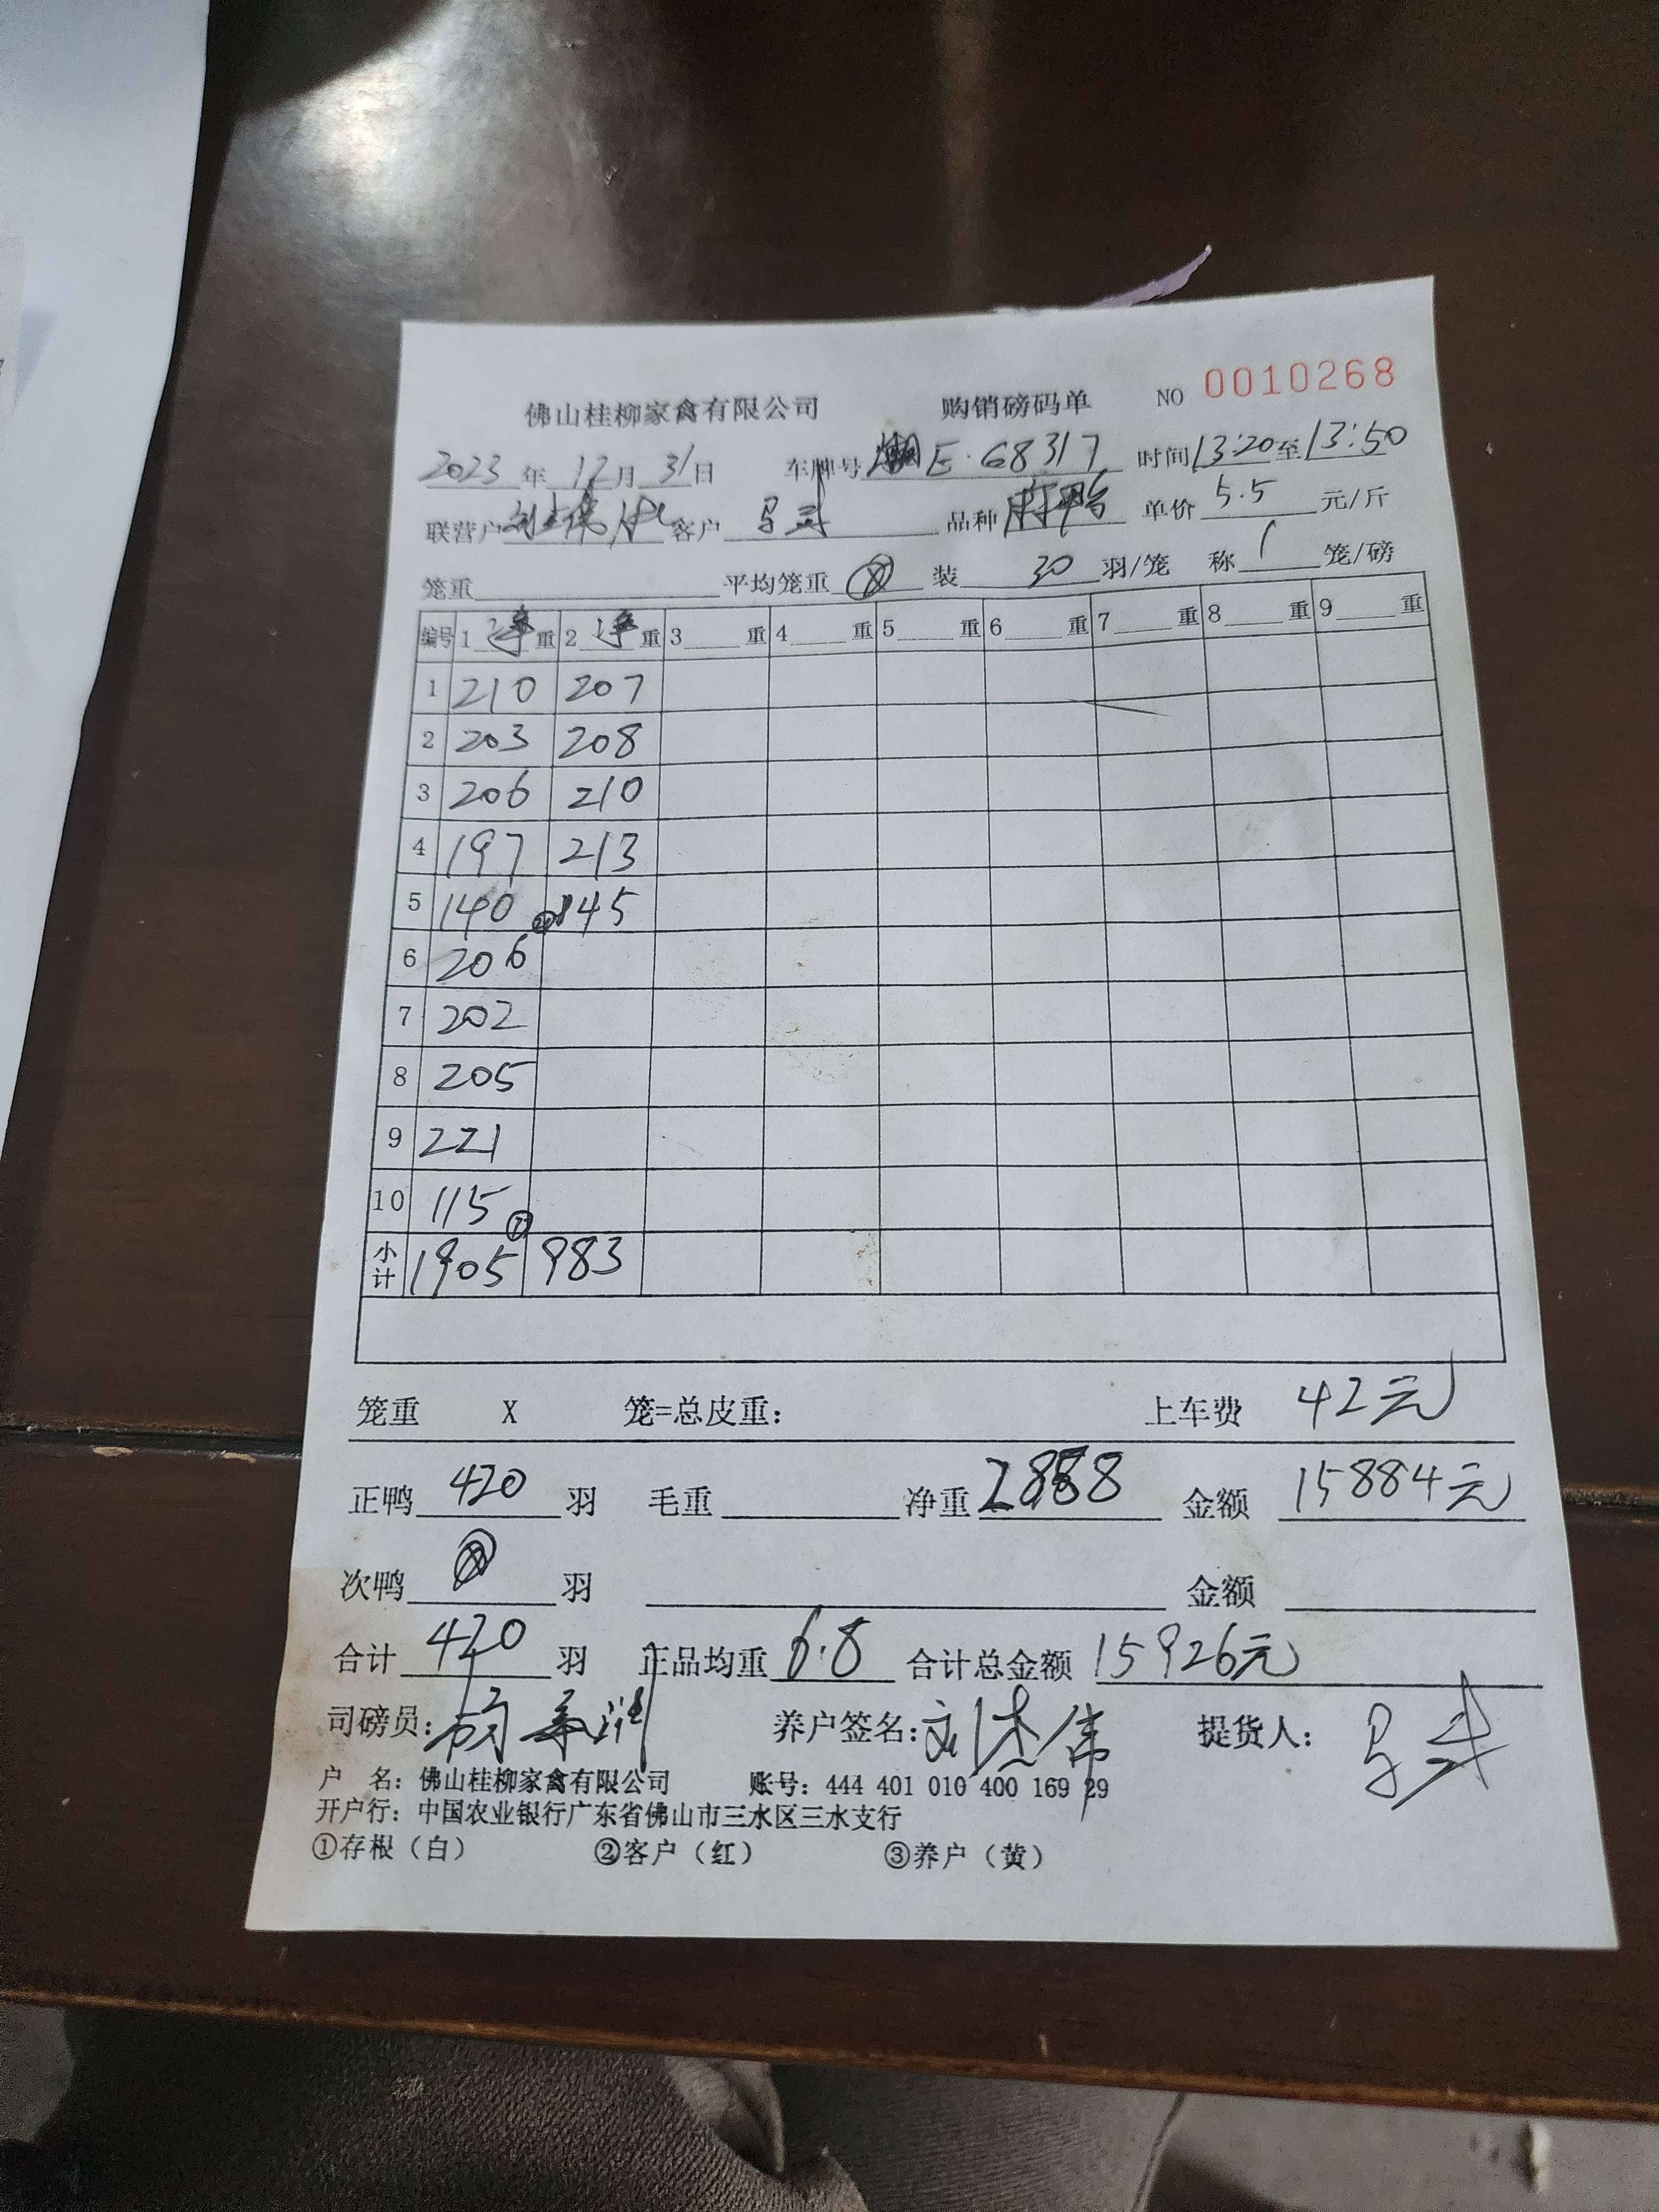 佛山桂柳家禽有限公司 购销磅码单 NO 0010268
2023年12月31日 车牌号 E·68317 时间13:20至13:50
联营户 客户 品种 单价5.5元/斤
笼重 平均笼重 装30羽/笼 称1笼/磅
编号 1净重 2净重 3重 4重 5重 6重 7重 8重 9重
1 210 207
2 203 208
3 206 210
4 197 213
5 140 145
6 206
7 202
8 205
9 221
10 115
小计 1905 983
笼重 X 笼=总皮重： 上车费 42元
正鸭420羽 毛重 净重2888 金额 15884元
次鸭 羽 金额
合计420羽 正品均重6.8 合计总金额15926元
司磅员： 养户签名：刘杰伟 提货人：
户 名：佛山桂柳家禽有限公司 账号：444 401 010 400 169 29
开户行：中国农业银行广东省佛山市三水区三水支行
①存根（白） ②客户（红） ③养户（黄）